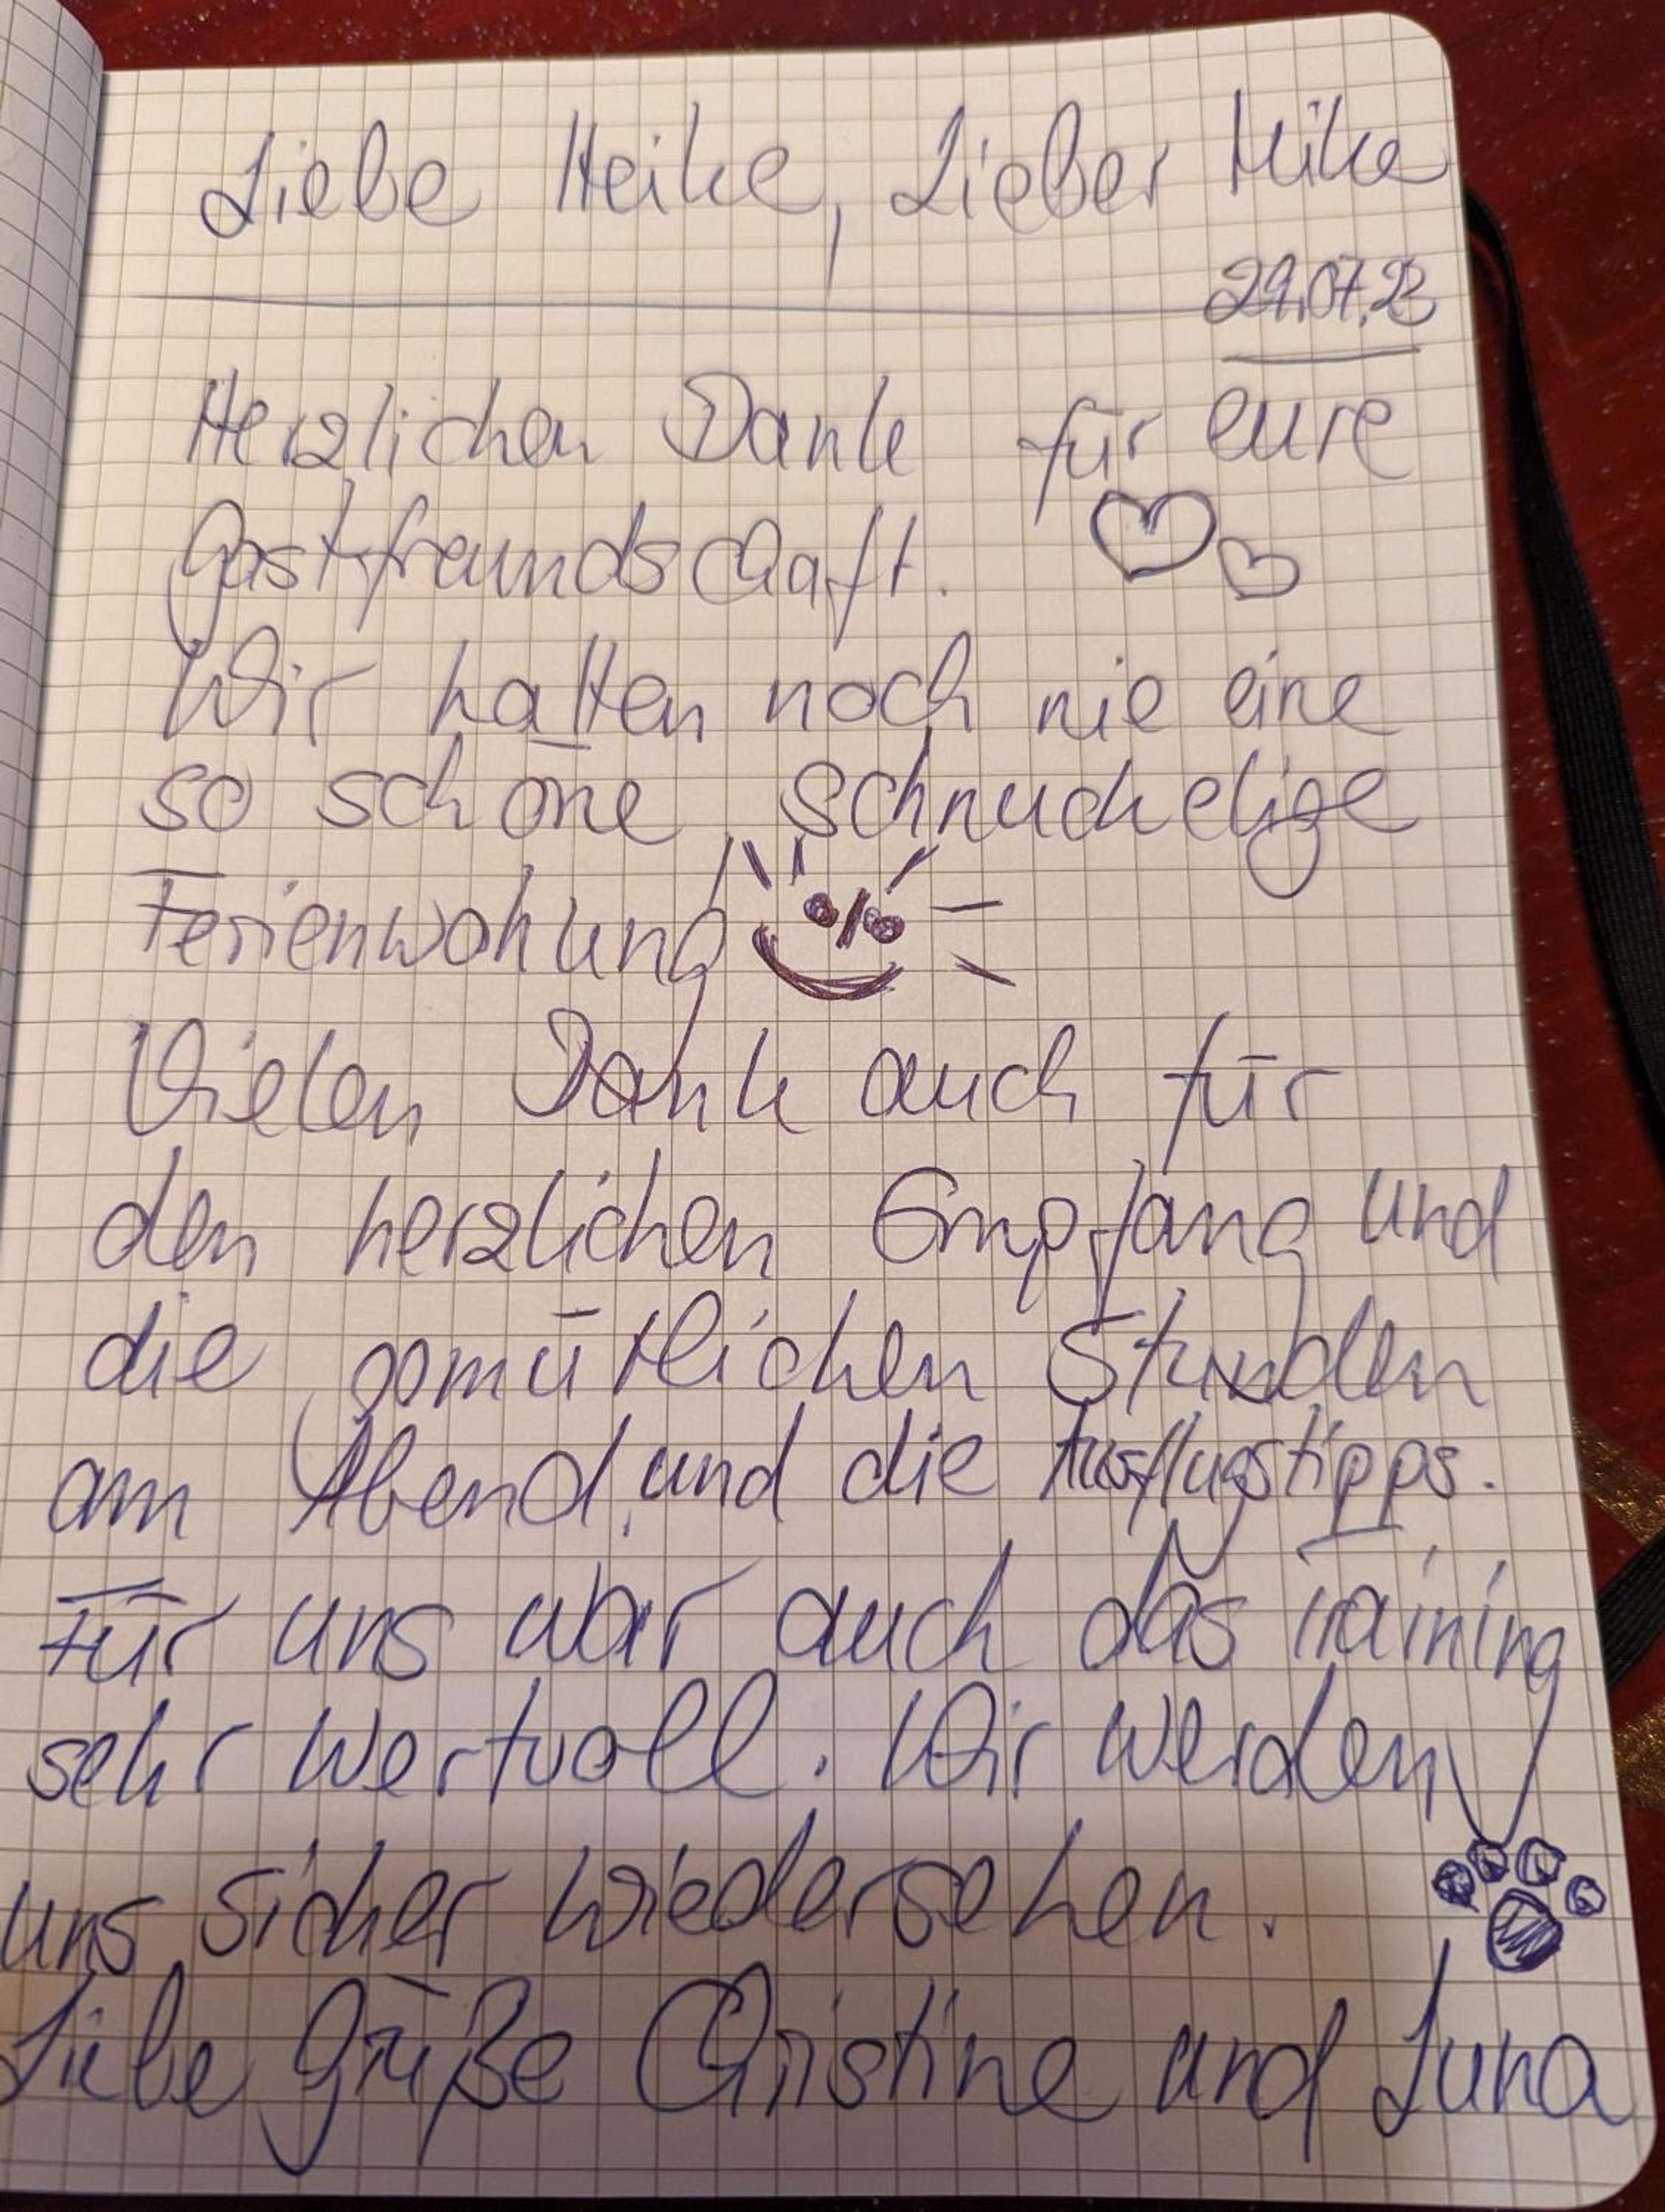 Liebe Heike, Lieber Mike
29.07.23
Herzlichen Dank für eure
Gastfreundschaft.
Wir hatten noch nie eine
so schöne, schnuckelige
Ferienwohnung
Vielen Dank auch für
den herzlichen Empfang und
die gemütlichen Stunden
am Abend, und die Ausflugstipps.
Für uns war auch das Training
sehr wertvoll. Wir werden
uns sicher wiedersehen.
Liebe Grüße Christine und Luna